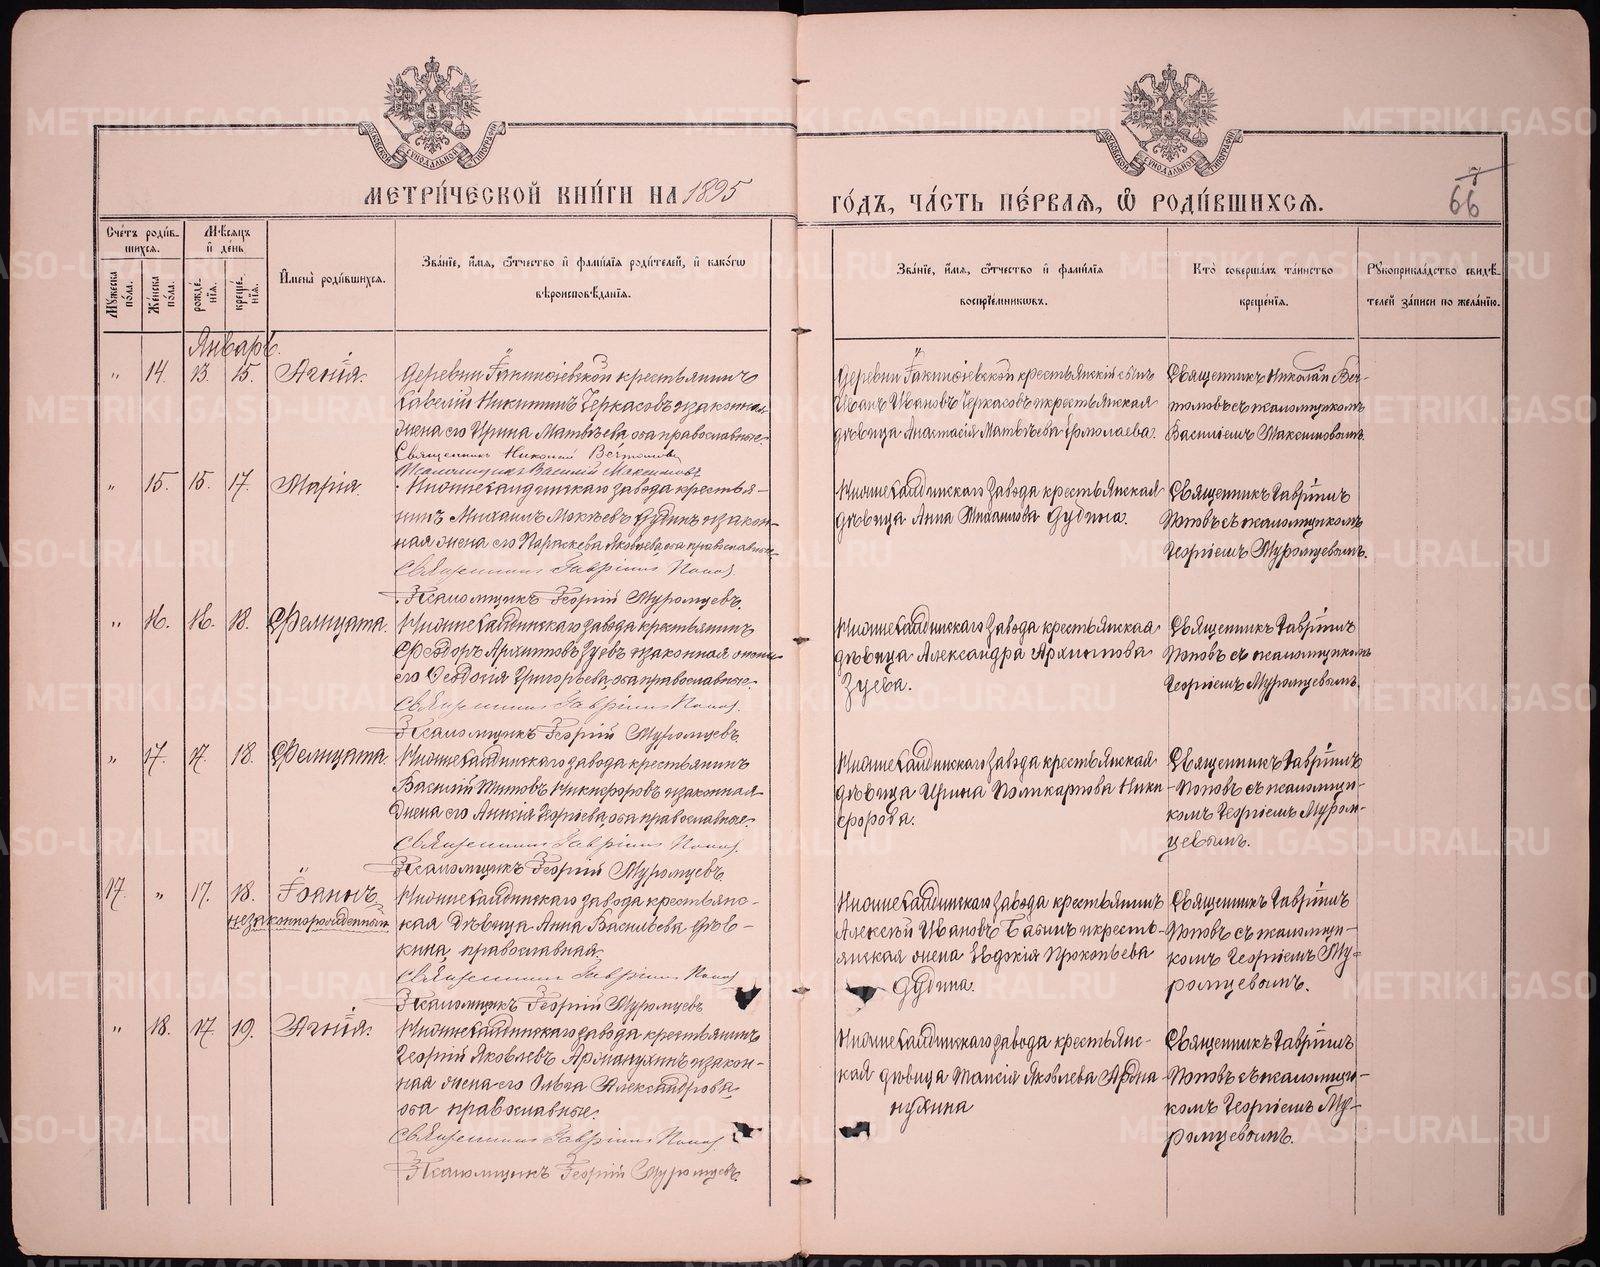 МЕТРИ́ЧЕСКОЙ КНИ́ГИ НА 1895
ГО́ДЪ, ЧА́СТЬ ПЕ́РВАЯ, Ѡ҆ РОДИ́ВШИХСѦ.
7
66
Сче́тъ роди́в-
шихсѧ.
Мѣсѧцъ
и҆ де́нь
Мꙋжеска по́ла.
Же́нска по́ла.
рожде́нїѧ.
креще́нїѧ.
И҆мена̀ роди́вшихсѧ.
Зва́нїе, и҆́мѧ, ѻ҆́тчество и҆ фами́лїѧ роди́телей, и҆ како́гѡ
вѣроисповѣ́данїѧ.
Зва́нїе, и҆́мѧ, ѻ҆́тчество и҆ фами́лїѧ
воспрїе́мникѡвъ.
Кто̀ соверша́лъ та́инство
креще́нїѧ.
Рꙋкоприкла́дство свидѣ́-
телей за́писи по жела́нїю.
Январь.
" 14. 13. 15. Агнія.
деревни Іакинѳіевской крестьянинъ
Савелій Никитинъ Черкасовъ и законная
жена его Ирина Матвѣева, оба православные.
Священникъ Николай
Псаломщикъ Василій Максимовъ
деревни Іакинѳіевской крестьянскій сынъ
Иванъ Ивановъ Черкасовъ и крестьянская
дѣвица Анастасія Матвѣева Ермолаева.
Священникъ Николай
съ псаломщикомъ
Василіемъ Максимовымъ.
" 15. 15. 17. Марія.
Нижнесалдинскаго завода крестья-
нинъ Михаилъ Мокѣевъ Дудинъ и закон-
ная жена его Параскева Яковлева, оба православные.
Священникъ Гавріилъ Попов.
Псаломщикъ Георгій Муромцевъ.
Нижнесалдинскаго завода крестьянская
дѣвица Анна Михаилова Дудина.
Священникъ Гавріилъ
Поповъ съ псаломщикомъ
Георгіемъ Муромцевымъ.
" 16. 16. 18. Фелицата.
Нижнесалдинскаго завода крестьянинъ
Ѳеодоръ Архиповъ Зуевъ и законная жена
его Ѳеодосія Григорьева, оба православные.
Священникъ Гавріилъ Попов.
Псаломщикъ Георгій Муромцевъ.
Нижнесалдинскаго завода крестьянская
дѣвица Александра Архипова
Зуева.
Священникъ Гавріилъ
Поповъ съ псаломщикомъ
Георгіемъ Муромцевымъ.
" 17. 17. 18. Фелицата.
Нижнесалдинскаго завода крестьянинъ
Василій Титовъ Никифоровъ и законная
жена его Анисія Георгіева, оба православные.
Священникъ Гавріилъ Попов.
Псаломщикъ Георгій Муромцевъ.
Нижнесалдинскаго завода крестьянская
дѣвица Ирина Поликарпова Ники-
форова.
Священникъ Гавріилъ
Поповъ съ псаломщи-
комъ Георгіемъ Муром-
цевымъ.
17. " 17. 18. Іоаннъ
незаконнорожденный.
Нижнесалдинскаго завода крестьянс-
кая дѣвица Анна Васильева Дѣв-
кина, православная.
Священникъ Гавріилъ Попов.
Псаломщикъ Георгій Муромцевъ
Нижнесалдинскаго завода крестьянинъ
Алексѣй Ивановъ и кресть-
янская жена Евдокія Прокопьева
Дудина.
Священникъ Гавріилъ
Поповъ съ псаломщи-
комъ Георгіемъ Му-
ромцевымъ.
" 18. 17. 19. Агнія.
Нижнесалдинскаго завода крестьянинъ
Георгій Яковлевъ и закон-
ная жена его Ольга Александрова,
оба православные.
Священникъ Гавріилъ Попов.
Псаломщикъ Георгій Муромцевъ.
Нижнесалдинскаго завода крестьянс-
кая дѣвица Таисія Яковлева
Священникъ Гавріилъ
Поповъ съ псаломщи-
комъ Георгіемъ Му-
ромцевымъ.
METRIKI.GASO-URAL.RU